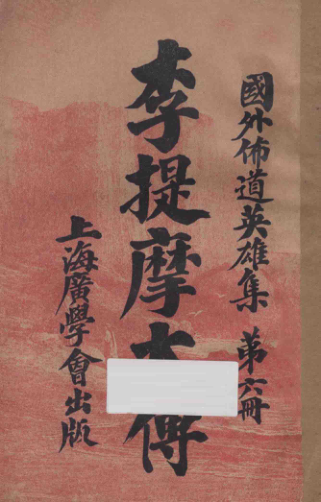 國外佈道英雄集 第六冊
李提摩 傳
上海廣學會出版